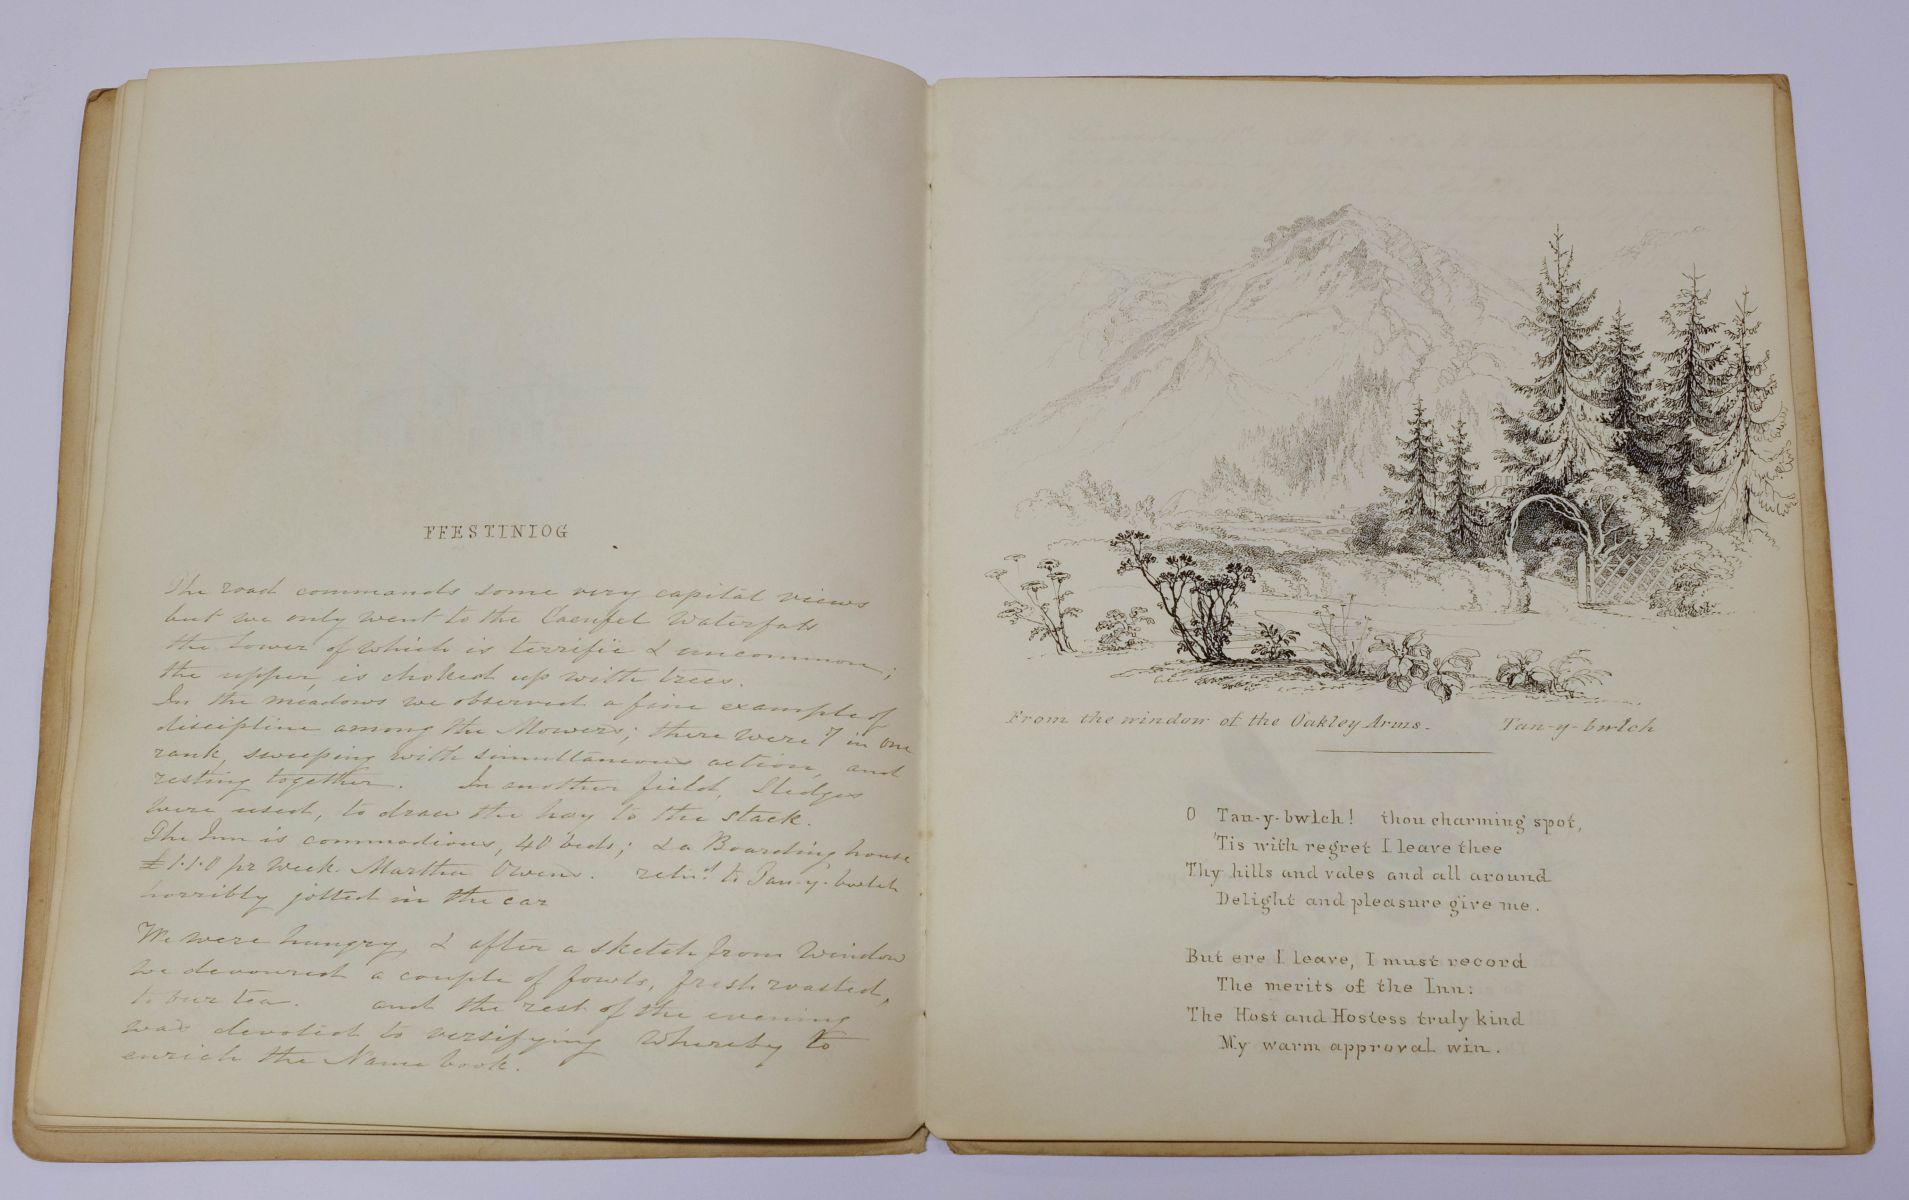 FFESTINIOG
The road commands some very capital views
but we only went to the Caenfel Waterfals
the lower of which is terrific & uncommon;
the upper, is choked up with trees.
In the meadows we observed a fine example of
discipline among the Mowers; there were 7 in one
rank, sweeping with simultaneous action, and
resting together. In another field, Sledges
were used, to draw the hay to the stack.
The Inn is commodious, 40 beds; & a Boarding house
£1.1.0 pr week. Martha Owens. retd. to Tan-y-bwlch
horribly jolted in the car
We were hungry, & after a sketch from Window
we devoured a couple of fowls, fresh roasted,
to our tea. and the rest of the evening
was devoted to versifying whereby to
enrich the Name book.
From the window of the Oakley Arms. Tan-y-bwlch
O Tan-y-bwlch! thou charming spot,
'Tis with regret I leave thee
Thy hills and vales and all around
Delight and pleasure give me.
But ere I leave, I must record
The merits of the Inn:
The Host and Hostess truly kind
My warm approval win.